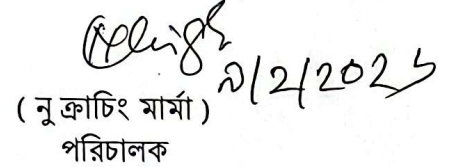 ৯/2/202৬
( নু ক্রাচিং মার্মা )
পরিচালক